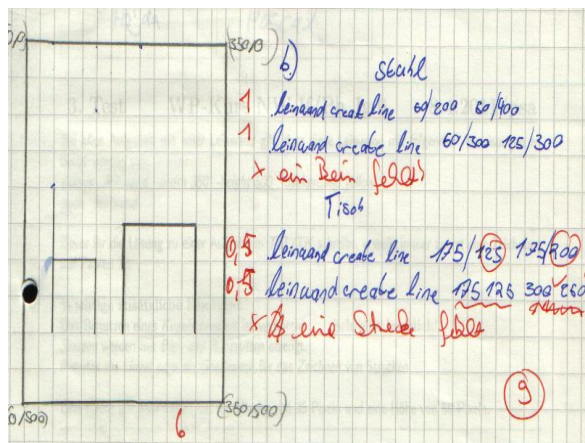 (350/0)
b.) Stuhl
1 leinwand create line 60/200 60/400
1 leinwand create line 60/300 125/300
x ein Bein fehlt
Tisch
0,5 leinwand create line 175/125 175/200
0,5 leinwand create line 175 125 300 250
x eine Strecke fehlt
9
(350/500)
6